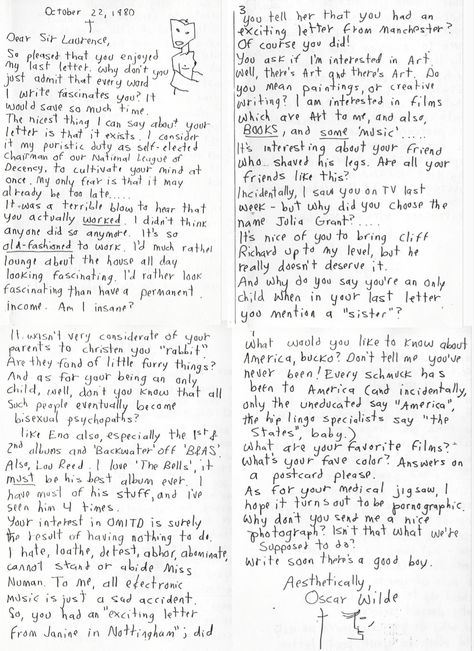 October 22, 1980
Dear Sir Laurence,
So pleased that you enjoyed
my last letter. Why don't you
just admit that every word
I write fascinates you? It
would save so much time.
The nicest thing I can say about your
letter is that it exists. I consider
it my puristic duty as self-elected
Chairman of our National League of
Decency, to cultivate your mind at
once. My only fear is that it may
already be too late.....
It was a terrible blow to hear that
you actually worked. I didn't think
anyone did so anymore. It's so
old-fashioned to work. I'd much rather
lounge about the house all day
looking fascinating. I'd rather look
fascinating than have a permanent
income. Am I insane?
It wasn't very considerate of your
parents to christen you "rabbit"
Are they fond of little furry things?
And as for your being an only
child, well, don't you know that all
such people eventually become
bisexual psychopaths?
I like Eno also, especially the 1st &
2nd albums and 'Backwater' off 'B&AS'.
Also, Lou Reed. I love 'The Bells', it
must be his best album ever. I
have most of his stuff, and I've
seen him 4 times.
Your interest in OMITD is surely
the result of having nothing to do.
I hate, loathe, detest, abhor, abominate,
cannot stand or abide Miss
Numan. To me, all electronic
music is just a sad accident.
So, you had an "exciting letter
from Janine in Nottingham"; did
3
you tell her that you had an
exciting letter from Manchester?
Of course you did!
You ask if I'm interested in Art.
Well, there's Art and there's Art. Do
you mean paintings, or creative
writing? I am interested in films
which are Art to me, and also,
BOOKS, and some 'music'.....
It's interesting about your friend
who.. shaved his legs. Are all your
friends like this?
Incidentally, I saw you on TV last
week - but why did you choose the
name Julia Grant?....
It's nice of you to bring Cliff
Richard up to my level, but he
really doesn't deserve it.
And why do you say you're an only
child when in your last letter
you mention a "sister"?
What would you like to know about
America, bucko? Don't tell me you've
never been! Every schmuck has
been to America (and incidentally,
only the uneducated say "America",
the hip lingo specialists say "the
States", baby.)
What are your favorite films?
What's your fave color? Answers on
a postcard please.
As for your medical jigsaw, I
hope it turns out to be pornographic.
Why don't you send me a nice
photograph? Isn't that what we're
supposed to do?
Write soon there's a good boy.
Aesthetically,
Oscar Wilde